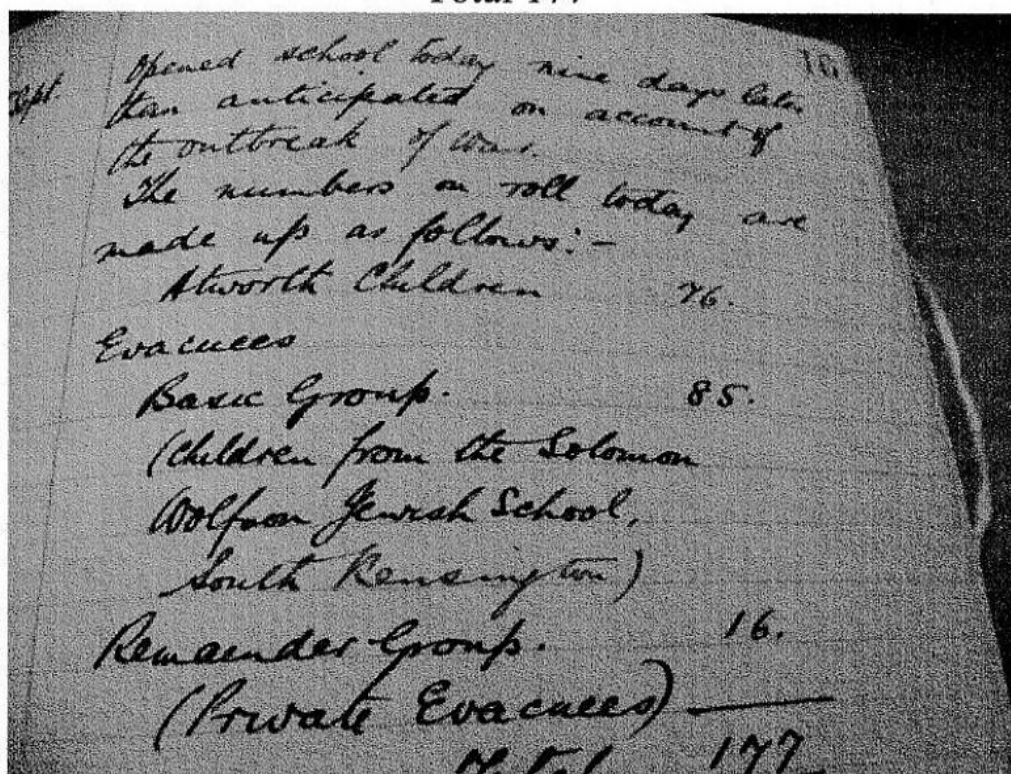 Total 177
16
Sept. Opened school today nine days later
than anticipated on account of
the outbreak of War.
The numbers on roll today are
made up as follows:-
Atworth Children 76.
Evacuees
Basic Group. 85.
(Children from the Solomon
Wolfson Jewish School,
South Kensington)
Remainder Group. 16.
(Private Evacuees)
Total 177